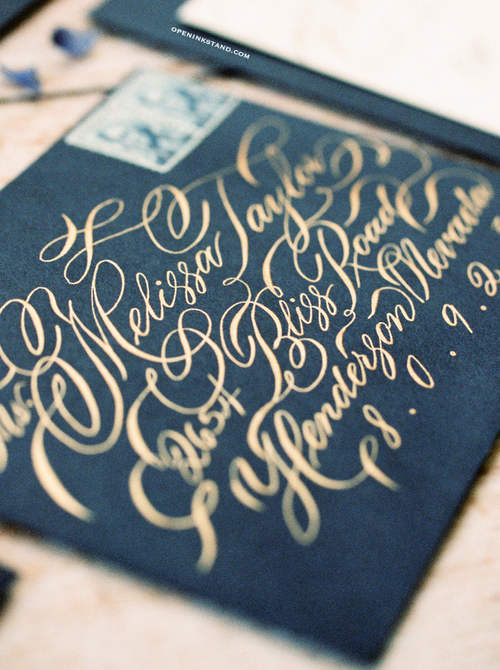 OPENINKSTAND.COM
Ms. Melissa Taylor
2654 Bliss Road
Henderson Nevada
8 . 0 . 9 . 2